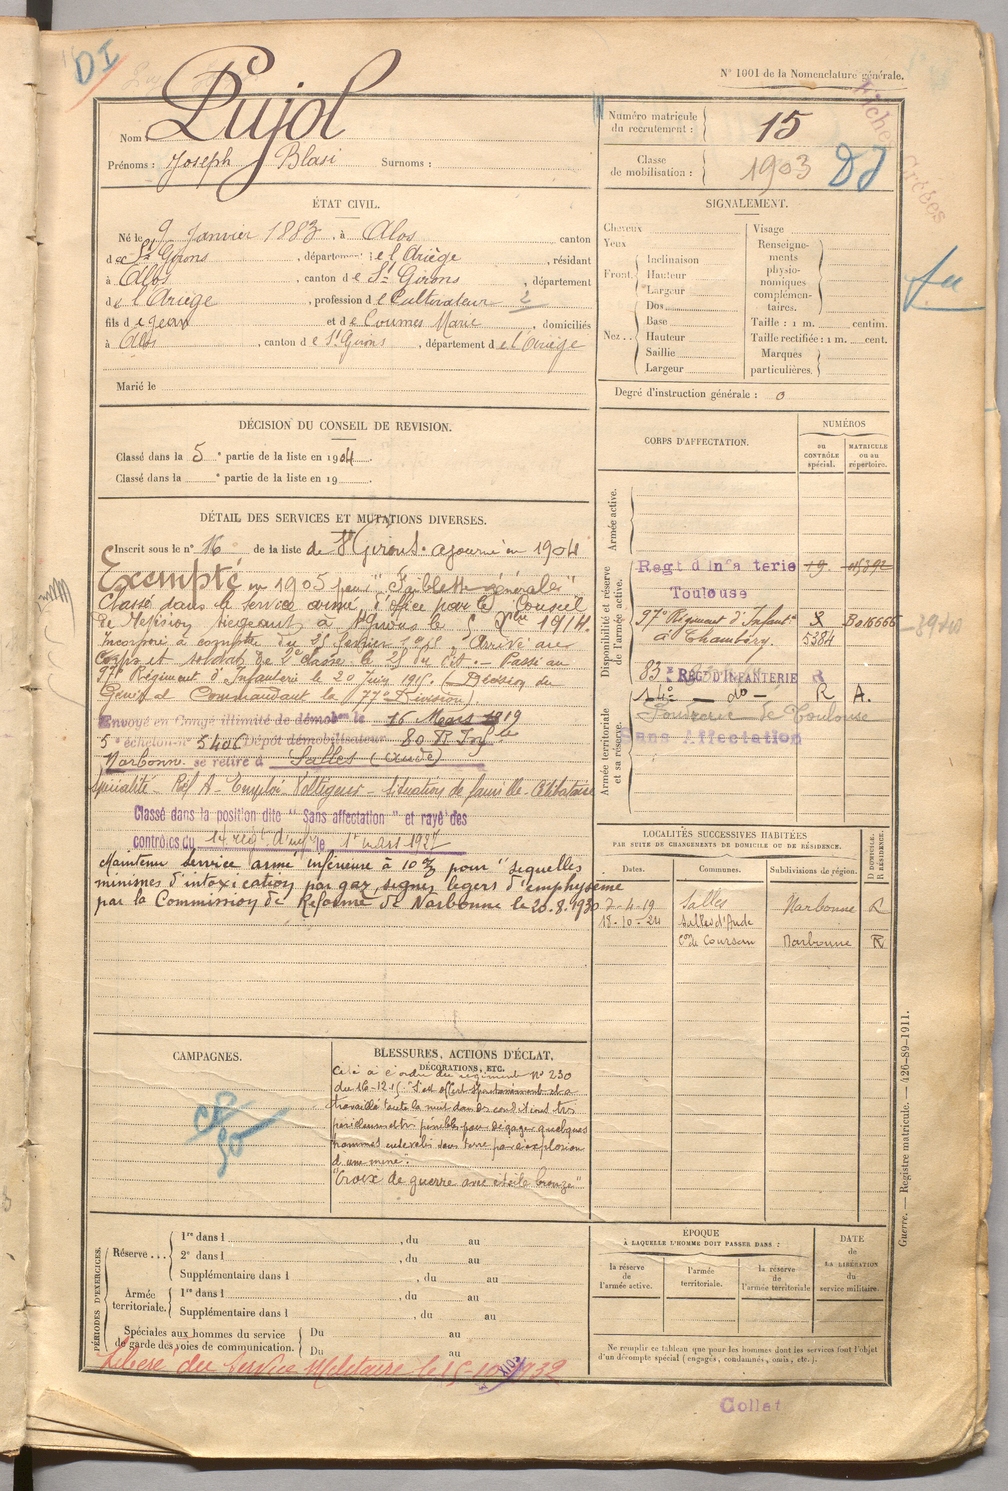 DI
N° 1001 de la Nomenclature générale.
Fiches Créées
Nom : Pujol
Prénoms : Joseph Blasi Surnoms :
Numéro matricule du recrutement : 15
Classe de mobilisation : 1903
ÉTAT CIVIL.
Né le 9 Janvier 1883, à Alos, canton
de St Girons, département de l'Ariège, résidant
à Alos, canton de St Girons, département
de l'Ariège, profession de Cultivateur 2
fils de Jean et de Coumes Marie, domiciliés
à Alos, canton de St Girons, département de l'Ariège
Marié le
SIGNALEMENT.
Cheveux
Yeux
Front. Inclinaison
Hauteur
Largeur
Nez.. Dos
Base
Hauteur
Saillie
Largeur
Visage
Renseignements physionomiques complémentaires.
Taille : 1 m. centim.
Taille rectifiée : 1 m. cent.
Marques particulières.
Degré d'instruction générale : 0
DÉCISION DU CONSEIL DE REVISION.
Classé dans la 5e partie de la liste en 1904.
Classé dans la e partie de la liste en 19 .
DÉTAIL DES SERVICES ET MUTATIONS DIVERSES.
Inscrit sous le n° 16 de la liste de St Girons. ajourné en 1904
Exempté en 1905 pour "Faiblesse générale"
Classé dans le service armé d'office par le Conseil
de Révision siégeant à St Girons le Xbre 1914.
Incorporé à compter du 25 Février 1915. Arrivé au
Corps et soldat de 2e classe le 25 du dit. - Passé au
97e Régiment d'Infanterie le 20 Juin 1915 (Décision du
Général Commandant la 77e Division)
Envoyé en Congé illimité de démobon le 16 Mars 1919
5e échelon n° 5406 Dépôt démobilisateur 80 R Infie
Narbonne se retire à Salles (Aude)
Spécialité - Rés A - Emploi Voltigeur - Situation de famille - Célibataire
Classé dans la position dite "Sans affectation" et rayé des
contrôles du 14 régt d'inf le 1er mars 1927
Maintenu service armé inférieure à 10 % pour "séquelles
minimes d'intoxication par gaz, signes légers d'emphysème
par la Commission de Réforme de Narbonne le 20.8.1930
CORPS D'AFFECTATION.
NUMÉROS
DU CONTRÔLE spécial.
MATRICULE ou au répertoire.
Armée active.
Disponibilité et réserve de l'armée active.
Regt d'Infanterie 19
Toulouse
97e Régiment d'Infantie
à Chambéry. 5384
83e REG. D'INFANTERIE R
14e - do - R A.
Poudrerie de Toulouse
Sans Affectation
Armée territoriale et sa réserve.
LOCALITÉS SUCCESSIVES HABITÉES
PAR SUITE DE CHANGEMENTS DE DOMICILE OU DE RÉSIDENCE.
Dates. Communes. Subdivisions de région. D DOMICILE. R RÉSIDENCE.
7-4-19 Salles Narbonne R
18-10-24 Salles d'Aude
con de Coursan Narbonne R
CAMPAGNES.
BLESSURES, ACTIONS D'ÉCLAT, DÉCORATIONS, ETC.
Cité à l'ordre du régiment N° 230
du 16-12-15 "S'est offert spontanément et a
travaillé toute la nuit dans des conditions très
périlleuses et très pénibles pour dégager quelques
hommes ensevelis sous terre par l'explosion
d'une mine".
"Croix de guerre avec étoile bronze"
PÉRIODES D'EXERCICES.
Réserve... 1re dans l , du au
2e dans l , du au
Supplémentaire dans l , du au
Armée territoriale. 1re dans l , du au
Supplémentaire dans l , du au
Spéciales aux hommes du service de garde des voies de communication. Du au
Du au
Libéré du service Militaire le 15-10-1932
ÉPOQUE
À LAQUELLE L'HOMME DOIT PASSER DANS :
la réserve de l'armée active.
l'armée territoriale.
la réserve de l'armée territoriale
DATE de LA LIBÉRATION du service militaire.
Ne remplir ce tableau que pour les hommes dont les services font l'objet
d'un décompte spécial (engagés, condamnés, omis, etc.).
Guerre. — Registre matricule. — 426-89-1911.
Collat